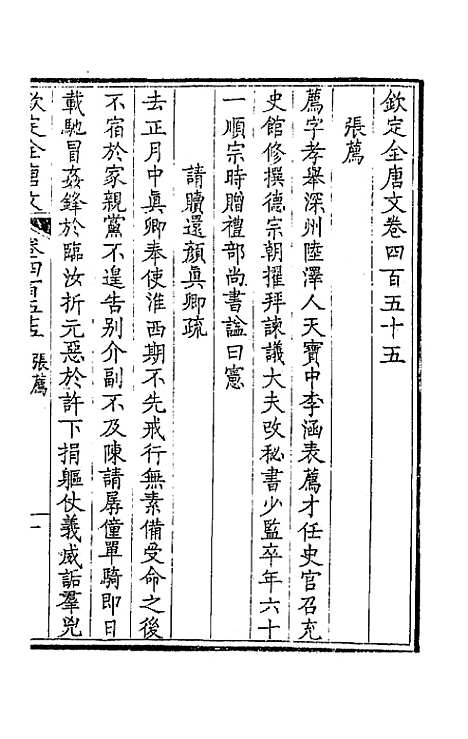 欽定全唐文卷四百五十五
張薦
薦字孝舉深州陸澤人天寶中李涵表薦才任史官召充
史館修撰德宗朝擢拜諫議大夫改秘書少監卒年六十
一順宗時贈禮部尚書諡曰憲
請贖還顏真卿疏
去正月中真卿奉使淮西期不先戒行無素備受命之後
不宿於家親黨不遑告別介副不及陳請孱僮單騎即日
載馳冒姦鋒於臨汝折元惡於許下捐軀仗義威詬羣兇
欽定全唐文 卷四百五十五 張薦 一